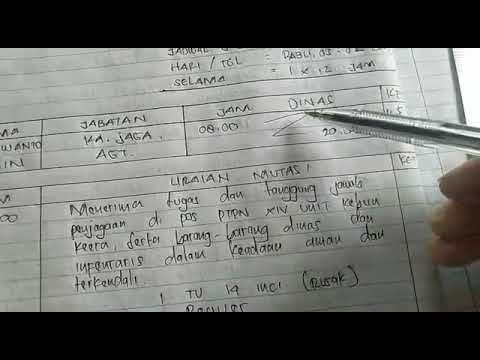 JADWAL
HARI / TGL = RABU, 03-
SELAMA = 1 X 12 JAM
JABATAN JAM DINAS
WANTO KA. JAGA. 08.00
AGT. 20.
URAIAN MUTASI
Menerima tugas dan tanggung jawab
penjagaan di pos PTPN XIV UNIT Kebun
Keera, serta barang-barang dinas dan
infentaris dalam keadaan aman dan
terkendali.
1 TV 14 INCI (Rusak)